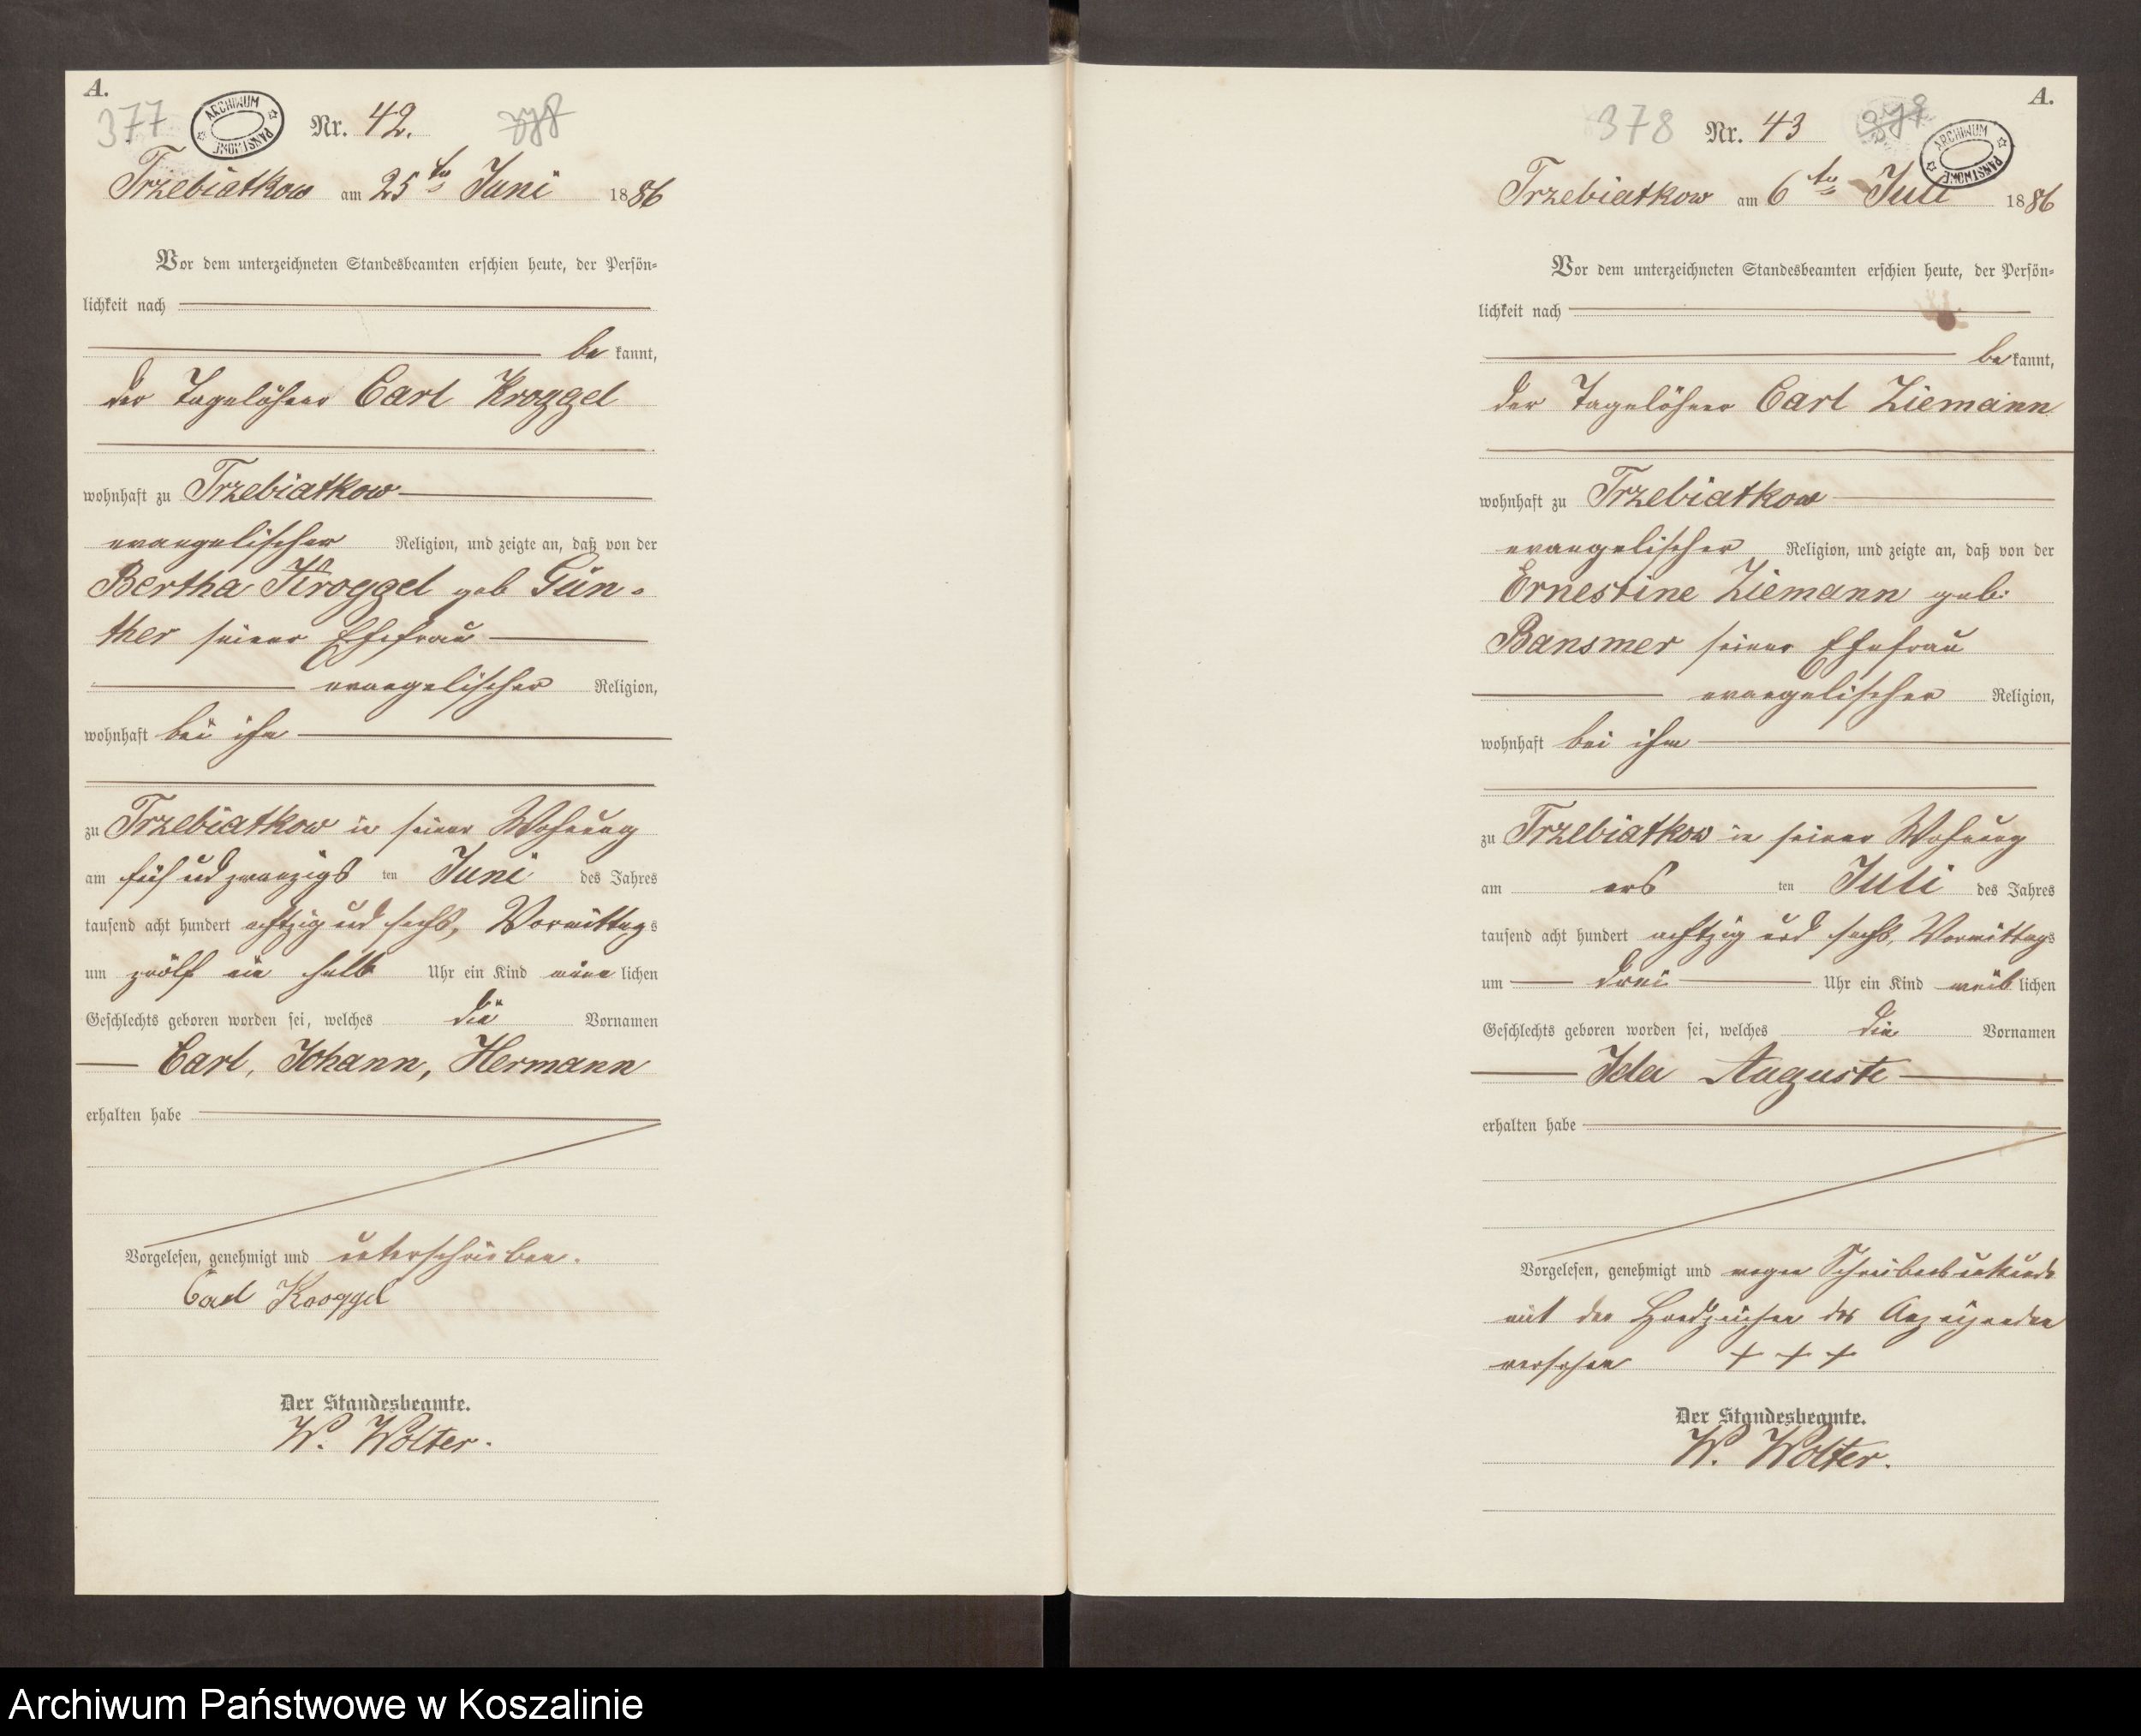 A.
377
ARCHIWUM PAŃSTWOWE
Nr. 42.
Trzebiatkow am 25ten Juni 1886
Vor dem unterzeichneten Standesbeamten erschien heute, der Persön-
lichkeit nach
be kannt,
der Tagelöhner Carl Kroggel
wohnhaft zu Trzebiatkow
evangelischer Religion, und zeigte an, daß von der
Bertha Kroggel geb Gün-
ther seiner Ehefrau
evangelischer Religion,
wohnhaft bei ihm
zu Trzebiatkow in seiner Wohnung
am fünfundzwanzigs ten Juni des Jahres
tausend acht hundert achtzig und sechs, Vormittags
um zwölf ein halb Uhr ein Kind männ lichen
Geschlechts geboren worden sei, welches die Vornamen
Carl, Johann, Hermann
erhalten habe
Vorgelesen, genehmigt und unterschrieben.
Carl Kroggel
Der Standesbeamte.
W. Wolter.
A.
378
Nr. 43
ARCHIWUM PAŃSTWOWE
Trzebiatkow am 6ten Juli 1886
Vor dem unterzeichneten Standesbeamten erschien heute, der Persön-
lichkeit nach
be kannt,
der Tagelöhner Carl Ziemann
wohnhaft zu Trzebiatkow
evangelischer Religion, und zeigte an, daß von der
Ernestine Ziemann geb:
Bansmer seiner Ehefrau
evangelischer Religion,
wohnhaft bei ihm
zu Trzebiatkow in seiner Wohnung
am ers ten Juli des Jahres
tausend acht hundert achtzig und sechs, Vormittags
um drei Uhr ein Kind weib lichen
Geschlechts geboren worden sei, welches die Vornamen
Ida Auguste
erhalten habe
Vorgelesen, genehmigt und wegen Schreibensunkunde
mit den Handzeichen des Anzeigenden
versehen + + +
Der Standesbeamte.
W. Wolter.
Archiwum Państwowe w Koszalinie